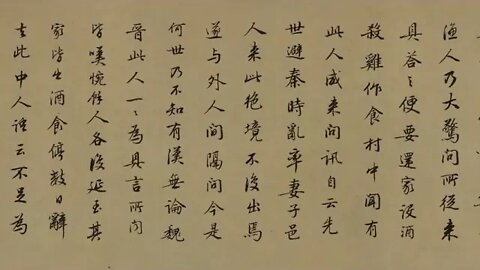 漁人乃大驚問所從来
具答之便要還家設酒
殺雞作食村中聞有
此人咸来問訊自云先
世避秦時亂率妻子邑
人来此絶境不復出焉
遂与外人間隔問今是
何世乃不知有漢無論魏
晉此人一一為具言所聞
皆嘆惋餘人各復延至其
家皆出酒食停數日辭
去此中人語云不足為